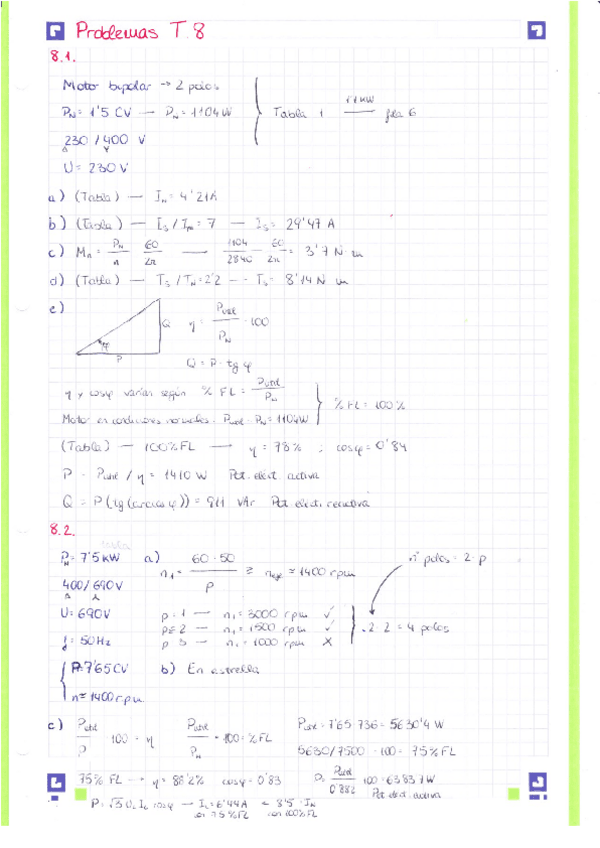 Problemas T.8
8.1.
Motor bipolar → 2 polos
PN = 1'5 CV — PN = 1104W
Tabla 1 — 1'1 kW — fila 6
230/400 V
Δ Y
U = 230 V
a) (Tabla) — In = 4'21A
b) (Tabla) — Is/In = 7 — Is = 29'47 A
c) Mn = PN/n 60/2π — 1104/2840 60/2π = 3'7 N·m
d) (Tabla) — Ts/TN = 2'2 -- Ts = 8'14 N m
e)
Q
φ
P
η = Putil/PN · 100
Q = P · tg φ
η y cosφ varían según % FL = Putil/PN
Motor en condiciones normales. Putil = PN = 1104W
% FL = 100%
(Tabla) — 100% FL → η = 78% ; cosφ = 0'84
P = Putil / η = 1410 W Pot. elect. activa
Q = P (tg(arccos φ)) = 911 VAr Pot. elect. reactiva
8.2.
PN = 7'5 KW a) n1 = 60·50/p ≥ neje = 1400 rpm
nº polos = 2·p
400/690V
Δ Y
U = 690V
f = 50Hz
p = 1 — n1 = 3000 rpm ✓
p = 2 — n1 = 1500 rpm ✓
p 3 — n1 = 1000 rpm X
2·2 = 4 polos
P = 7'65 CV
n = 1400 rpm
b) En estrella
c) Putil/P · 100 = η Putil/PN · 100 = % FL Putil = 7'65·736 = 5630'4 W
5630/7500 · 100 = 75% FL
75% FL → η = 88'2% cosφ = 0'83 P = Putil/0'882 · 100 = 6383'7W
Pot. elect. activa
P = √3 UL IL cosφ — IL = 6'44A
en 75% FL en 100% FL